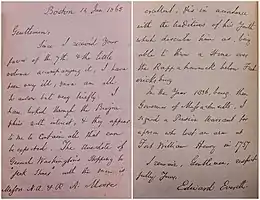 Boston 14 Jan. 1862
Gentlemen,
Since I received your
favor of the 7th & the little
volume accompanying it, I have
been very ill, even an able
to answer but very briefly. I
have looked through the
with interest, & they appear
to me to contain all that can
be expected. The Anecdote of
General Washington's stopping to
"pitch Stones" with the sons of
Major A. A. & R. A. Moore
excellent. This in accordance
with the traditions of his Youth
which describe him as being
able to throw a stone over
the Rappahannock below Fred-
ericksburg.
In the Year 1836, being then
Governor of Massachusetts, I
signed a Pension Warrant for
a person who lost an arm at
Fort William Henry in 1757
I remain, Gentlemen, respect-
fully Yours,
Edward Everett